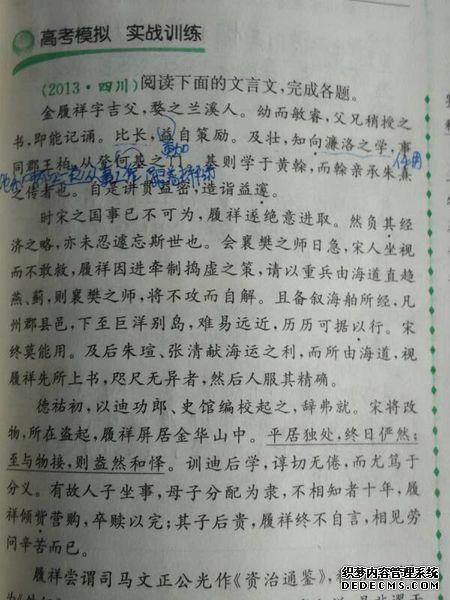 高考模拟 实战训练
(2013·四川)阅读下面的文言文,完成各题。
金履祥字吉父,婺之兰溪人。幼而敏睿,父兄稍授之
书,即能记诵。比长,益自策励。及壮,知向濂洛之学,事
同郡王柏,从登何基之门。基则学于黄榦,而榦亲承朱熹
之传者也。自是讲贯益密,造诣益邃。
时宋之国事已不可为,履祥遂绝意进取。然负其经
济之略,亦未忍遽忘斯世也。会襄樊之师日急,宋人坐视
而不敢救,履祥因进牵制捣虚之策,请以重兵由海道直趋
燕、蓟,则襄樊之师,将不攻而自解。且备叙海舶所经,凡
州郡县邑,下至巨洋别岛,难易远近,历历可据以行。宋
终莫能用。及后朱瑄、张清献海运之利,而所由海道,视
履祥先所上书,咫尺无异者,然后人服其精确。
德祐初,以迪功郎、史馆编校起之,辞弗就。宋将改
物,所在盗起,履祥屏居金华山中。平居独处,终日俨然;
至与物接,则盎然和怿。训迪后学,谆切无倦,而尤笃于
分义。有故人子坐事,母子分配为隶,不相知者十年,履
祥倾赀营购,卒赎以完;其子后贵,履祥终不自言,相见劳
问辛苦而已。
履祥尝谓司马文正公光作《资治通鉴》,
状元源 WWW.ZHUANGYUAN123.COM